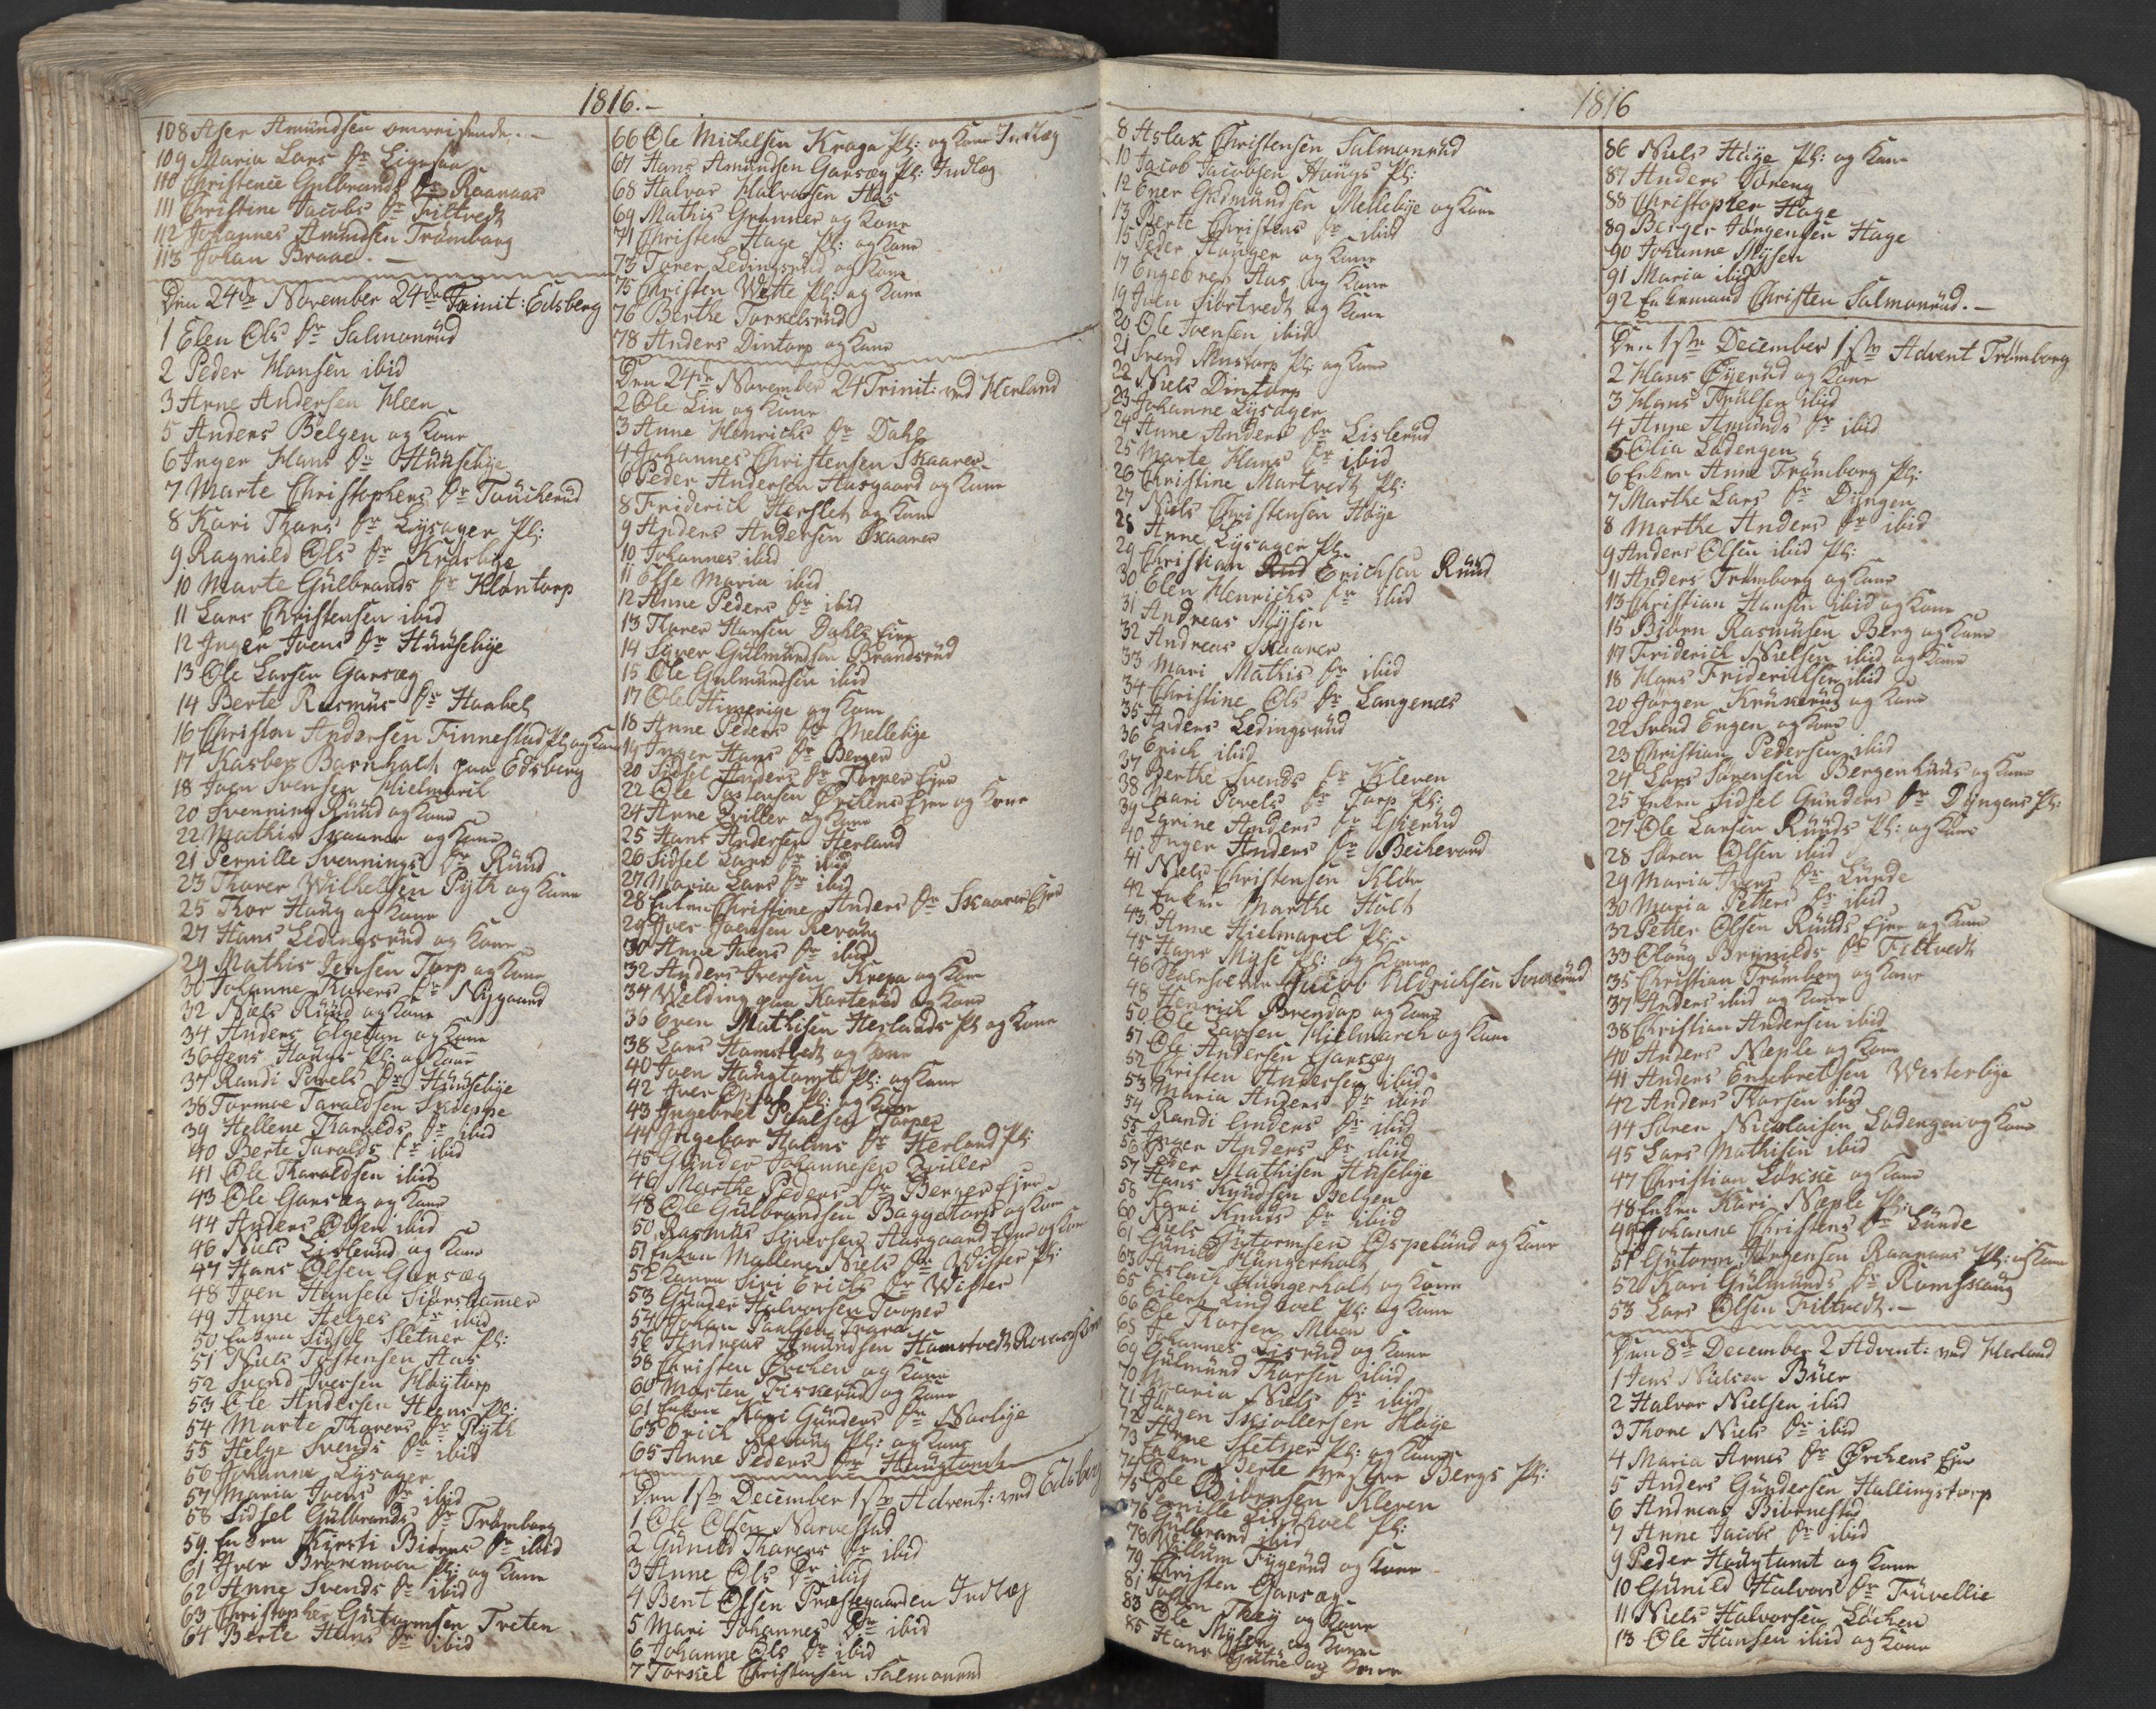 1816.-
108 Aser Amundsen omreisende.-
109 Maria Lars Dr
110 Christence Gulbrands Dr Raanaas
111 Christine Jacobs Dr Filtvedt
112 Johannes Amundsen Trømborg
113 Johan Braae.-
Den 24de November 24de Trinit: Edsberg
1 Elen Ols Dr Salmonrud
2 Peder Hansen ibid
3 Arne Andersen Heen
5 Anders Belgen og Kone
6 Inger Hans Dr Huusebye
7 Marte Christophers Dr Toucherud
8 Kari Thors Dr Lysager Pl:
9 Ragnild Ols Dr Krosbye
10 Marte Gulbrands Dr Kløntorp
11 Lars Christensen ibid
12 Inger Ivers Dr Huusebye
13 Ole Larsen Garseg
14 Berte Rasmus Dr Haabet
16 Christen Andersen Finnestad Pl: og Kone
17 Kasber Barnholdt paa Edsberg
18 Joen Svensen Hielmark
20 Svenning Ruud og Kone
22 Mathis Skaarer og Kone
21 Pernille Svennings Dr Ruud
23 Thorer Wilhelsen Pyth og Kone
25 Thor Haug og Kone
27 Hans Ledingsrud og Kone
29 Mathis Jensen Torp og Kone
30 Johanne Thorers Dr Nygaard
32 Niels Ruud og Kone
34 Anders Elgetun og Kone
36 Jens Haugs Pl: og Kone
37 Randi Povels Dr Huusebye
38 Tormoe Taraldsen Skieppe
39 Hellene Tharalds Dr ibid
40 Berte Taralds Dr ibid
41 Ole Tharaldsen ibid
43 Ole Garseg og Kone
44 Anders Olsen ibid
46 Niels Lislerud og Kone
47 Hans Olsen Garseg
48 Joen Hansen Siørshammer
49 Anne Helges Dr ibid
50 Enken Sidsel Sletner Pl:
51 Niels Tostensen Aas
52 Svend Iversen Høytorp
53 Ole Andersen Heens Pl:
54 Marte Thorers Dr Pyth
55 Helge Svends Dr ibid
56 Johanne Lysager
57 Maria Joens Dr ibid
58 Sidsel Gulbrands Dr Trømborg
59. Enken Kirsti Biørns Dr ibid
61 Iver Braremoen Pl: og Kone
62 Anne Svends Dr ibid
63 Christopher Gutormsen Treten
64 Berte Hans Dr ibid
66 Ole Michelsen Kraga Pl: og Kone Indlæg
67 Hans Amundsen Garseg Pl: Indlæg
68 Halvor Halvorsen Aas
69 Mathis Grønner og Kone
71 Christen Hage Pl: og Kone
73 Torer Ledingsrud og Kone
75 Christen Wette Pl: og Kone
76 Berthe Torkelsrud
78 Anders Dintorp og Kone
Den 24de November 24 Trinit: ved Herland
2 Ole Lin og Kone
3 Anne Henrichs Dr Dahl
4 Johannes Christensen Skaarer
6 Peder Andersen Aasgaard og Kone
8 Friderich Herslet og Kone
9 Anders Andersen Skaarer
10 Johannes ibid
11 Else Maria ibid
12 Anne Peders Dr ibid
13 Thorer Hansen Dahls Eje
14 Syver Gulmundsen Brandsrud
15 Ole Gulmundsen ibid
17 Ole Himerige og Kone
18 Anne Peders Dr Mellebye
19 Inger Hans Dr Berger
20 Sidsel Anders Dr Torper Eje
22 Ole Tostensen Ørchens Eje og Kone
24 Arne Qviller og Kone
25 Hans Andersen Herland
26 Sidsel Lars Dr ibid
27 Maria Lars Dr ibid
28 Enken Christine Anders Dr Skaarer Eje
29 Iver Joensen Revaug
30 Anne Joens Dr ibid
32 Anders Iversen Krega og Kone
34 Welding paa Karterud og Kone
36 Even Mathisen Herlands Pl: og Kone
38 Lars Hamstvedt og Kone
40 Joen Haugtomt Pl: og Kone
42 Iver Opsal Pl: og Kone
43 Ingebret Povelsen Torper
44 Ingebor Halvors Dr Herland Pl:
45 Gunder Johannesen Qviller
46 Marthe Peders Dr Berger Eje
48 Ole Gulbrandsen Baggetorp og Kone
50 Rasmus Siversen Aasgaard Eje og Kone
51 Enken Mallene Niels Dr Wister Pl:
52 Konen Siri Erichs Dr Wister
53 Gunder Halvorsen Torper
54 Johan Paulsen Trara
56 Andreas Amundsen Hamstvedt
58 Christen Ørchen og Kone
60 Morten Fiskerud og Kone
61 Enken Kari Gunders Dr Norbye
63 Erich Revaug Pl: og Kone
65 Anne Peders Dr Haugtomt
Den 1ste December 1ste Advent: ved Edsberg
1 Ole Olsen Narvestad
2 Gunild Thorers Dr ibid
3 Anne Ols Dr ibid
4 Bent Olsen Præstegaarden Indlæg
5 Mari Johannes Dr ibid
6 Johanne Ols Dr ibid
7 Torkel Christensen Salmonrud
1816
8 Aslak Christensen Salmonrud
10 Jacob Jacobsen Haugs Pl:
12 Ener Gudmundsen Mellebye og Kone
13 Berte Christens Dr ibid
15 Peder Haugen og Kone
17 Engebret Aas og Kone
19 Joen Siortvedt og Kone
20 Ole Joensen ibid
21 Svend Mustorp Pl: og Kone
22 Niels Dintorp
23 Johanne Lysager
24 Anne Anders Dr Lislerud
25 Marte Hans Dr ibid
26 Christine Martvedt Pl:
27 Niels Christensen Høye
28 Anne Lysager Pl:
29 Christian Erichsen Ruud
30 Elen Henrichs Dr ibid
31 Andreas Mysen
32 Andreas Skaarer
33 Mari Mathis Dr ibid
34 Christine Ols Dr Langenæs
35 Anders Ledingsrud
36 Erich ibid
37 Berthe Svends Dr Kleven
38 Mari Povels Dr Torp Pl:
39 Karine Anders Dr
40 Inger Anders Dr Bechevard
41 Niels Christensen Kløv
42 Enken Marthe Holt
43 Anne Hielmarck Pl:
45 Hans Myse Pl: og Kone
46 Skoleholder Jacob Uldrichsen
48 Henrich Brendop og Kone
50 Ole Larsen Hielmarch og Kone
51 Ole Andersen Garseg
52 Christen Andersen ibid
53 Maria Anders Dr ibid
54 Randi Anders Dr ibid
55 Inger Anders Dr ibid
56 Peder Mathisen Husebye
57 Hans Knudsen Belgen
58 Kari Knuds Dr ibid
60 Niels Gutormsen Espelund og Kone
61 Gunild Hungerholt
63 Aslach Hungerholt og Kone
65 Eilert Lindhoel Pl: og Kone
66 Ole Thorsen Moen
68 Johannes Lisrud og Kone
69 Gulmund Thorsen ibid
70 Maria Niels Dr ibid
71 Jørgen Skiollersen Høye
72 Arne Sletner Pl: og Kone
73 Enken Berte Bergs Pl:
74 Ole Biørnsen Kleven
75 Pernille Lindhoel Pl:
76 Gulbrand ibid
78 Willum Fygerud og Kone
79 Christen Garseg
81 Tosten Thøy og Kone
83 Ole Mysen og Kone
85 Hans Gutue og Kone
86 Niels Høye Pl: og Kone
87 Anders Doreng
88 Christopher Hage
89 Berger Jørgensen Hage
90 Johanne Mysen
91 Maria ibid
92 Enkemand Christen Salmonrud.-
Den 1ste December 1ste Advent Trømborg
2 Hans Øyerud og Kone
3 Hans Trulsen ibid
4 Anne Amunds Dr ibid
5 Olia Ladengen
6 Enken Anne Trømborg Pl:
7 Marthe Lars Dr Dyngen
8 Marthe Anders Dr ibid
9 Anders Olsen ibid Pl:
11 Anders Trømborg og Kone
13 Christian Hansen ibid og Kone
15 Biørn Rasmusen Berg og Kone
17 Friderich Nielsen ibid og Kone
18 Hans Friderichsen ibid
20 Jørgen Kruserud og Kone
22 Svend Engen og Kone
23 Christian Pedersen ibid
24 Lars Sørensen Bergenhuus og Kone
25 Enken Sidsel Gunders Dr Dyngens Pl:
27 Ole Larsen Ruuds Pl: og Kone
28 Søren Olsen ibid
29 Maria Ivers Dr Lunde
30 Maria Petters Dr ibid
32 Petter Olsen Ruuds Eje og Kone
33 Olaug Brynilds Dr Filtvedt
35 Christian Trømborg og Kone
37 Anders ibid og Kone
38 Christian Andersen ibid
40 Anders Næple og Kone
41 Anders Engebretsen Westerbye
42 Anders Thorsen ibid
44 Søren Nicolaisen Ladengen og Kone
45 Lars Mathisen ibid
47 Christian Løkke og Kone
48 Enken Kari Næple Pl:
49 Johanne Christens Dr Lunde
51 Gutorm Jørgensen Raanaas Pl: og Kone
52 Kari Gulmunds Dr Romskaug
53 Lars Olsen Filtvedt.-
Den 8de December 2 Advent: ved Herland
1 Jens Nielsen Buer
2 Halvor Nielsen ibid
3 Thone Niels Dr ibid
4 Maria Arnes Dr Ørchens Eje
5 Anders Gundersen Hallingstorp
6 Andreas Biørnestad
7 Anne Jacobs Dr ibid
9 Peder Haugtomt og Kone
10 Gunild Halvors Dr Fuvellie
11 Niels Halvorsen Løchen
13 Ole Hansen ibid og Kone